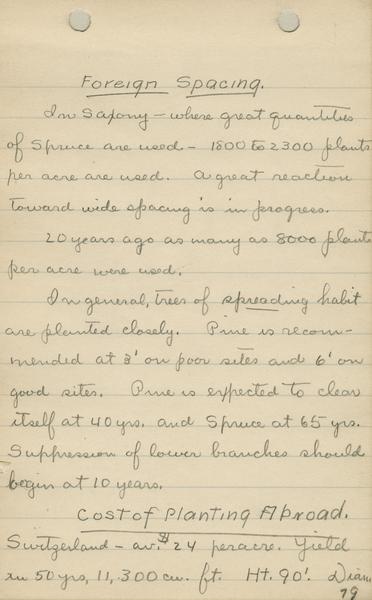 Foreign Spacing.
In Saxony - where great quantities
of Spruce are used - 1800 to 2300 plants
per acre are used. A great reaction
toward wide spacing is in progress.
20 years ago as many as 8000 plants
per acre were used.
In general, trees of spreading habit
are planted closely. Pine is recom-
mended at 3' on poor sites and 6' on
good sites. Pine is expected to clear
itself at 40 yrs. and Spruce at 65 yrs.
Suppression of lower branches should
begin at 10 years.
Cost of Planting Abroad.
Switzerland - av. $24 per acre. Yield
in 50 yrs, 11,300 cu. ft. Ht. 90'. Diam
79